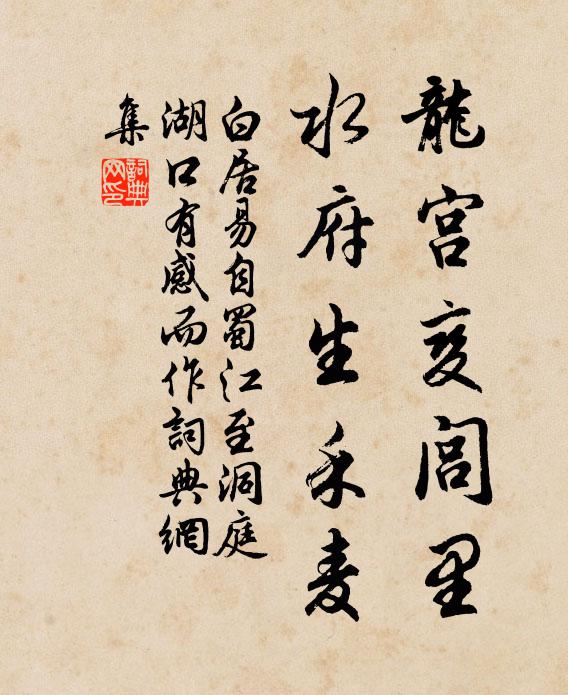 龍宮变閭里
水府生禾麦
白居易自蜀江至洞庭
湖口有感而作詞典網
集
詞典
网印